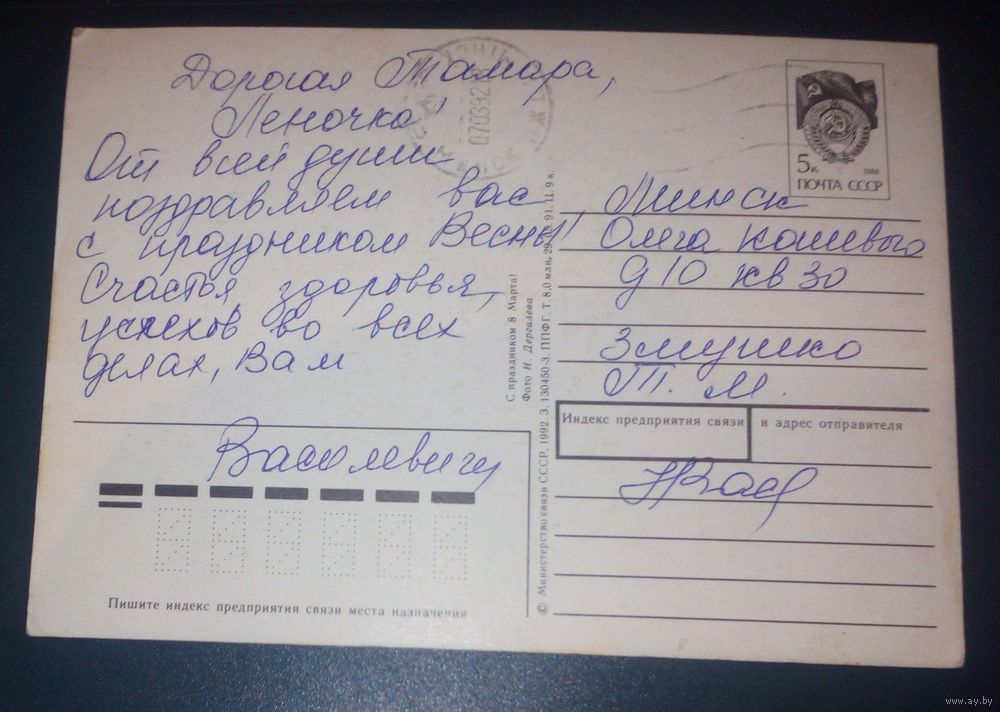 Дорогая Тамара,
Леночка!
От всей души
поздравляем вас
с праздником Весны!
Счастья, здоровья,
успехов во всех
делах, Вам
Василевичи
Пишите индекс предприятия связи места назначения
С праздником 8 Марта!
Фото И. Дергилева
© Министерство связи СССР, 1992. З. 130450-3. ППФГ. Т. 8,0 млн. 91. Ц. 9 к.
070392
5к 1988
ПОЧТА СССР
Минск
Олега Кошевого
д 10 кв 30
Змушко
Т. М.
Индекс предприятия связи и адрес отправителя
www.ay.by